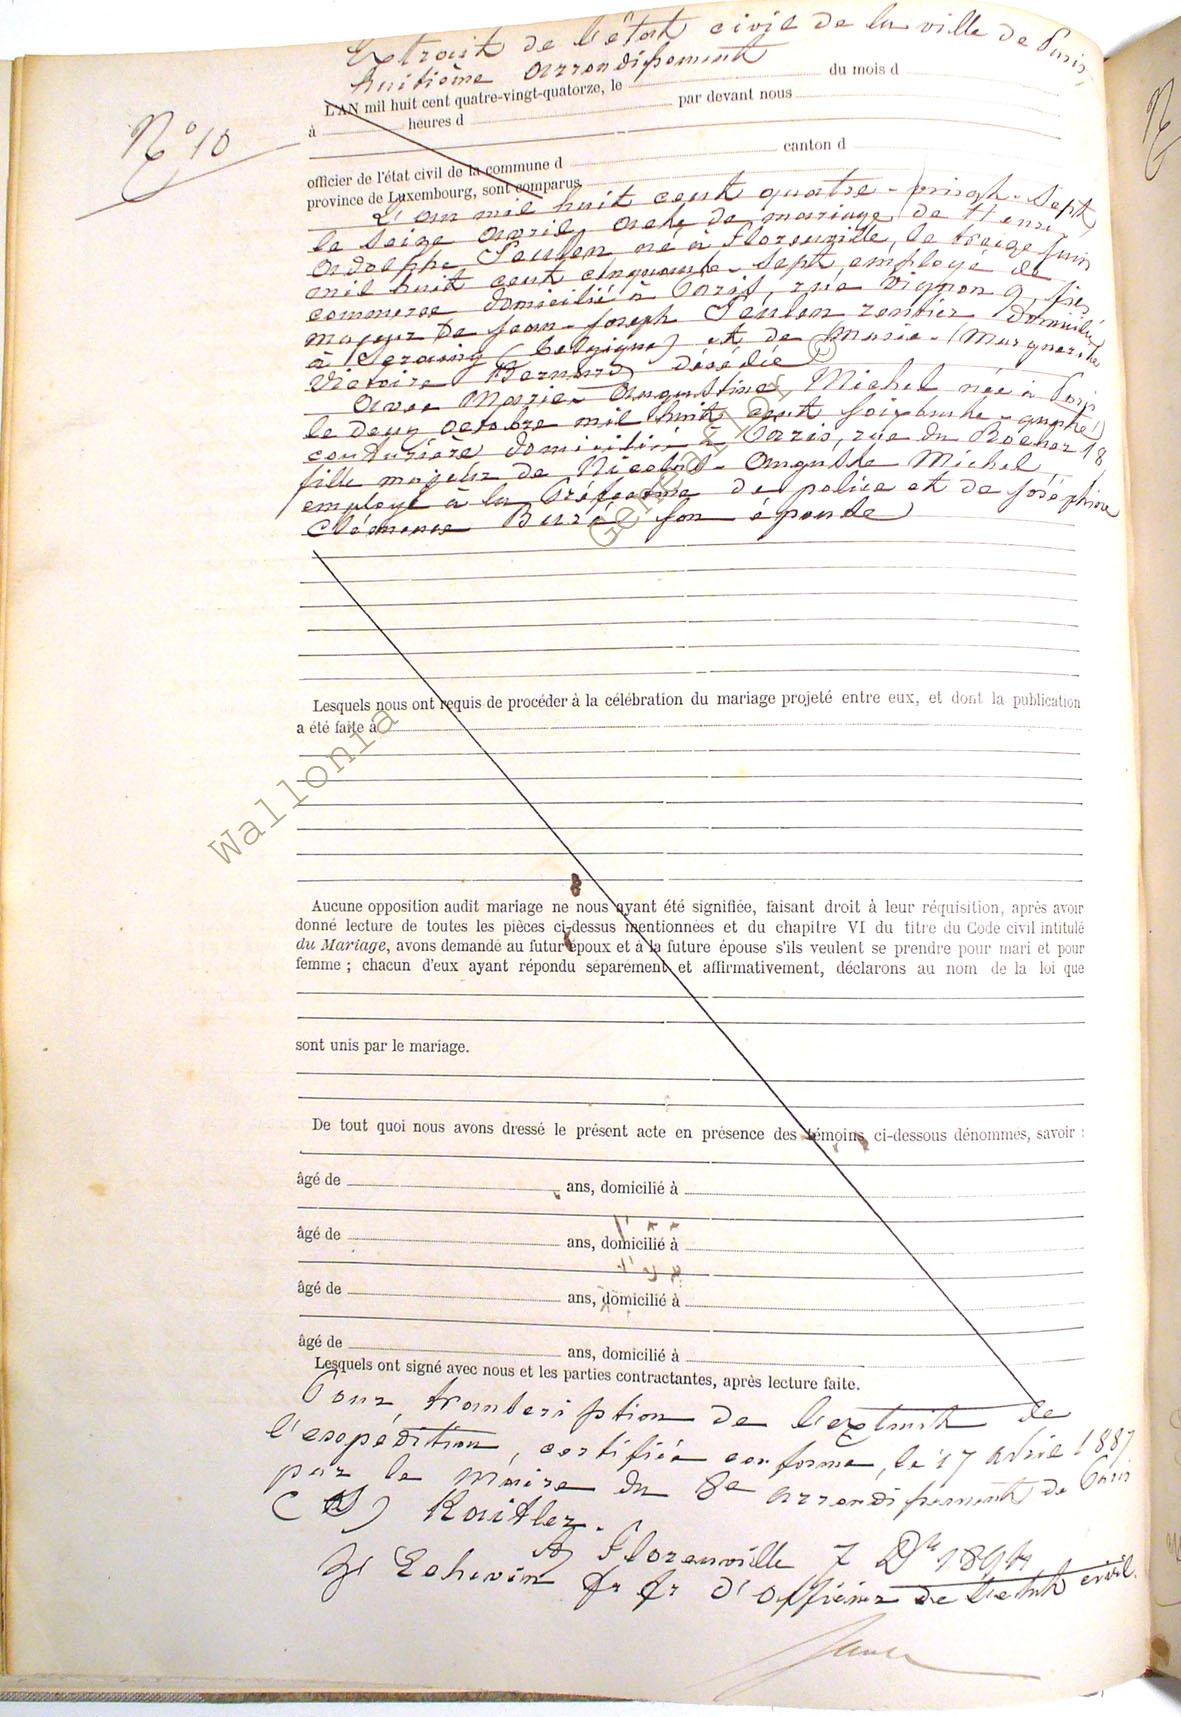 Extrait de l'état civil de la ville de Paris
huitième arrondissement
N° 10
L'AN mil huit cent quatre-vingt-quatorze, le du mois d
à heures d par devant nous
officier de l'état civil de la commune d canton d
province de Luxembourg, sont comparus
L'an mil huit cent quatre-vingt-sept
le seize avril, acte de mariage de Henri
Adolphe Feulen né à Florenville, le treize Juin
mil huit cent cinquante-sept employé de
commerce domicilié à Paris, rue Vignon 9, fils
majeur de Jean-Joseph Feulen rentier domicilié
à Seraing (Belgique) et de Marie-Marguerite
Victoire Bernard décédée
Avec Marie-Augustine Michel née à Paris
le deux octobre mil huit cent soixante-quatre
couturière domiciliée à Paris, rue du Rocher 18
fille majeure de Nicolas-Auguste Michel,
employé à la Préfecture de police et de Joséphine
Clémence Buré son épouse
Lesquels nous ont requis de procéder à la célébration du mariage projeté entre eux, et dont la publication
a été faite à
Aucune opposition audit mariage ne nous ayant été signifiée, faisant droit à leur réquisition, après avoir
donné lecture de toutes les pièces ci-dessus mentionnées et du chapitre VI du titre du Code civil intitulé
du Mariage, avons demandé au futur époux et à la future épouse s'ils veulent se prendre pour mari et pour
femme ; chacun d'eux ayant répondu séparément et affirmativement, déclarons au nom de la loi que
sont unis par le mariage.
De tout quoi nous avons dressé le présent acte en présence des témoins ci-dessous dénommés, savoir :
âgé de ans, domicilié à
âgé de ans, domicilié à
âgé de ans, domicilié à
âgé de ans, domicilié à
Lesquels ont signé avec nous et les parties contractantes, après lecture faite.
Pour transcription de l'extrait de
l'expédition, certifiée conforme, le 17 avril 1887
par le maire du 8e arrondissement de Paris
(S)
Florenville 7 1894
L'Echevin ff d'officier de l'état civil.
Wallonia
Genealor ©